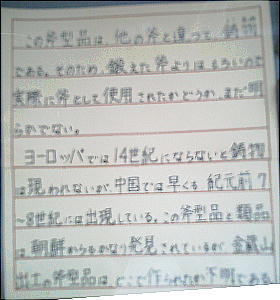 この斧型品は、他の斧と違って、鋳物
である。そのため、鍛えた斧よりはもろいので
実際に斧として使用されたかどうか、まだ明
らかでない。
ヨーロッパでは14世紀にならないと鋳物
は現われないが、中国では早くも紀元前7
~8世紀には出現している。この斧型品と類品
は朝鮮からもかなり発見されているが、金蔵山
出土の斧型品は、どこで作られたか不明である